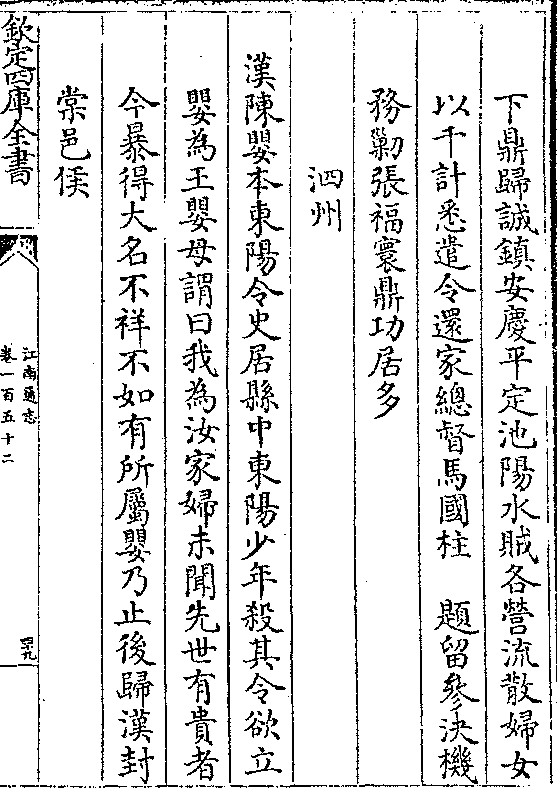 下鼎歸誠鎮安慶平定池陽水賊各營流散婦女
以千計悉遣令還家總督馬國柱　題留參決機
務勦張福寰鼎功居多
泗州
漢陳嬰本東陽令史居縣中東陽少年殺其令欲立
嬰為王嬰母謂曰我為汝家婦未聞先世有貴者
今暴得大名不祥不如有所屬嬰乃止後歸漢封
棠邑侯
欽定四庫全書
江南通志
卷一百五十二
四十九